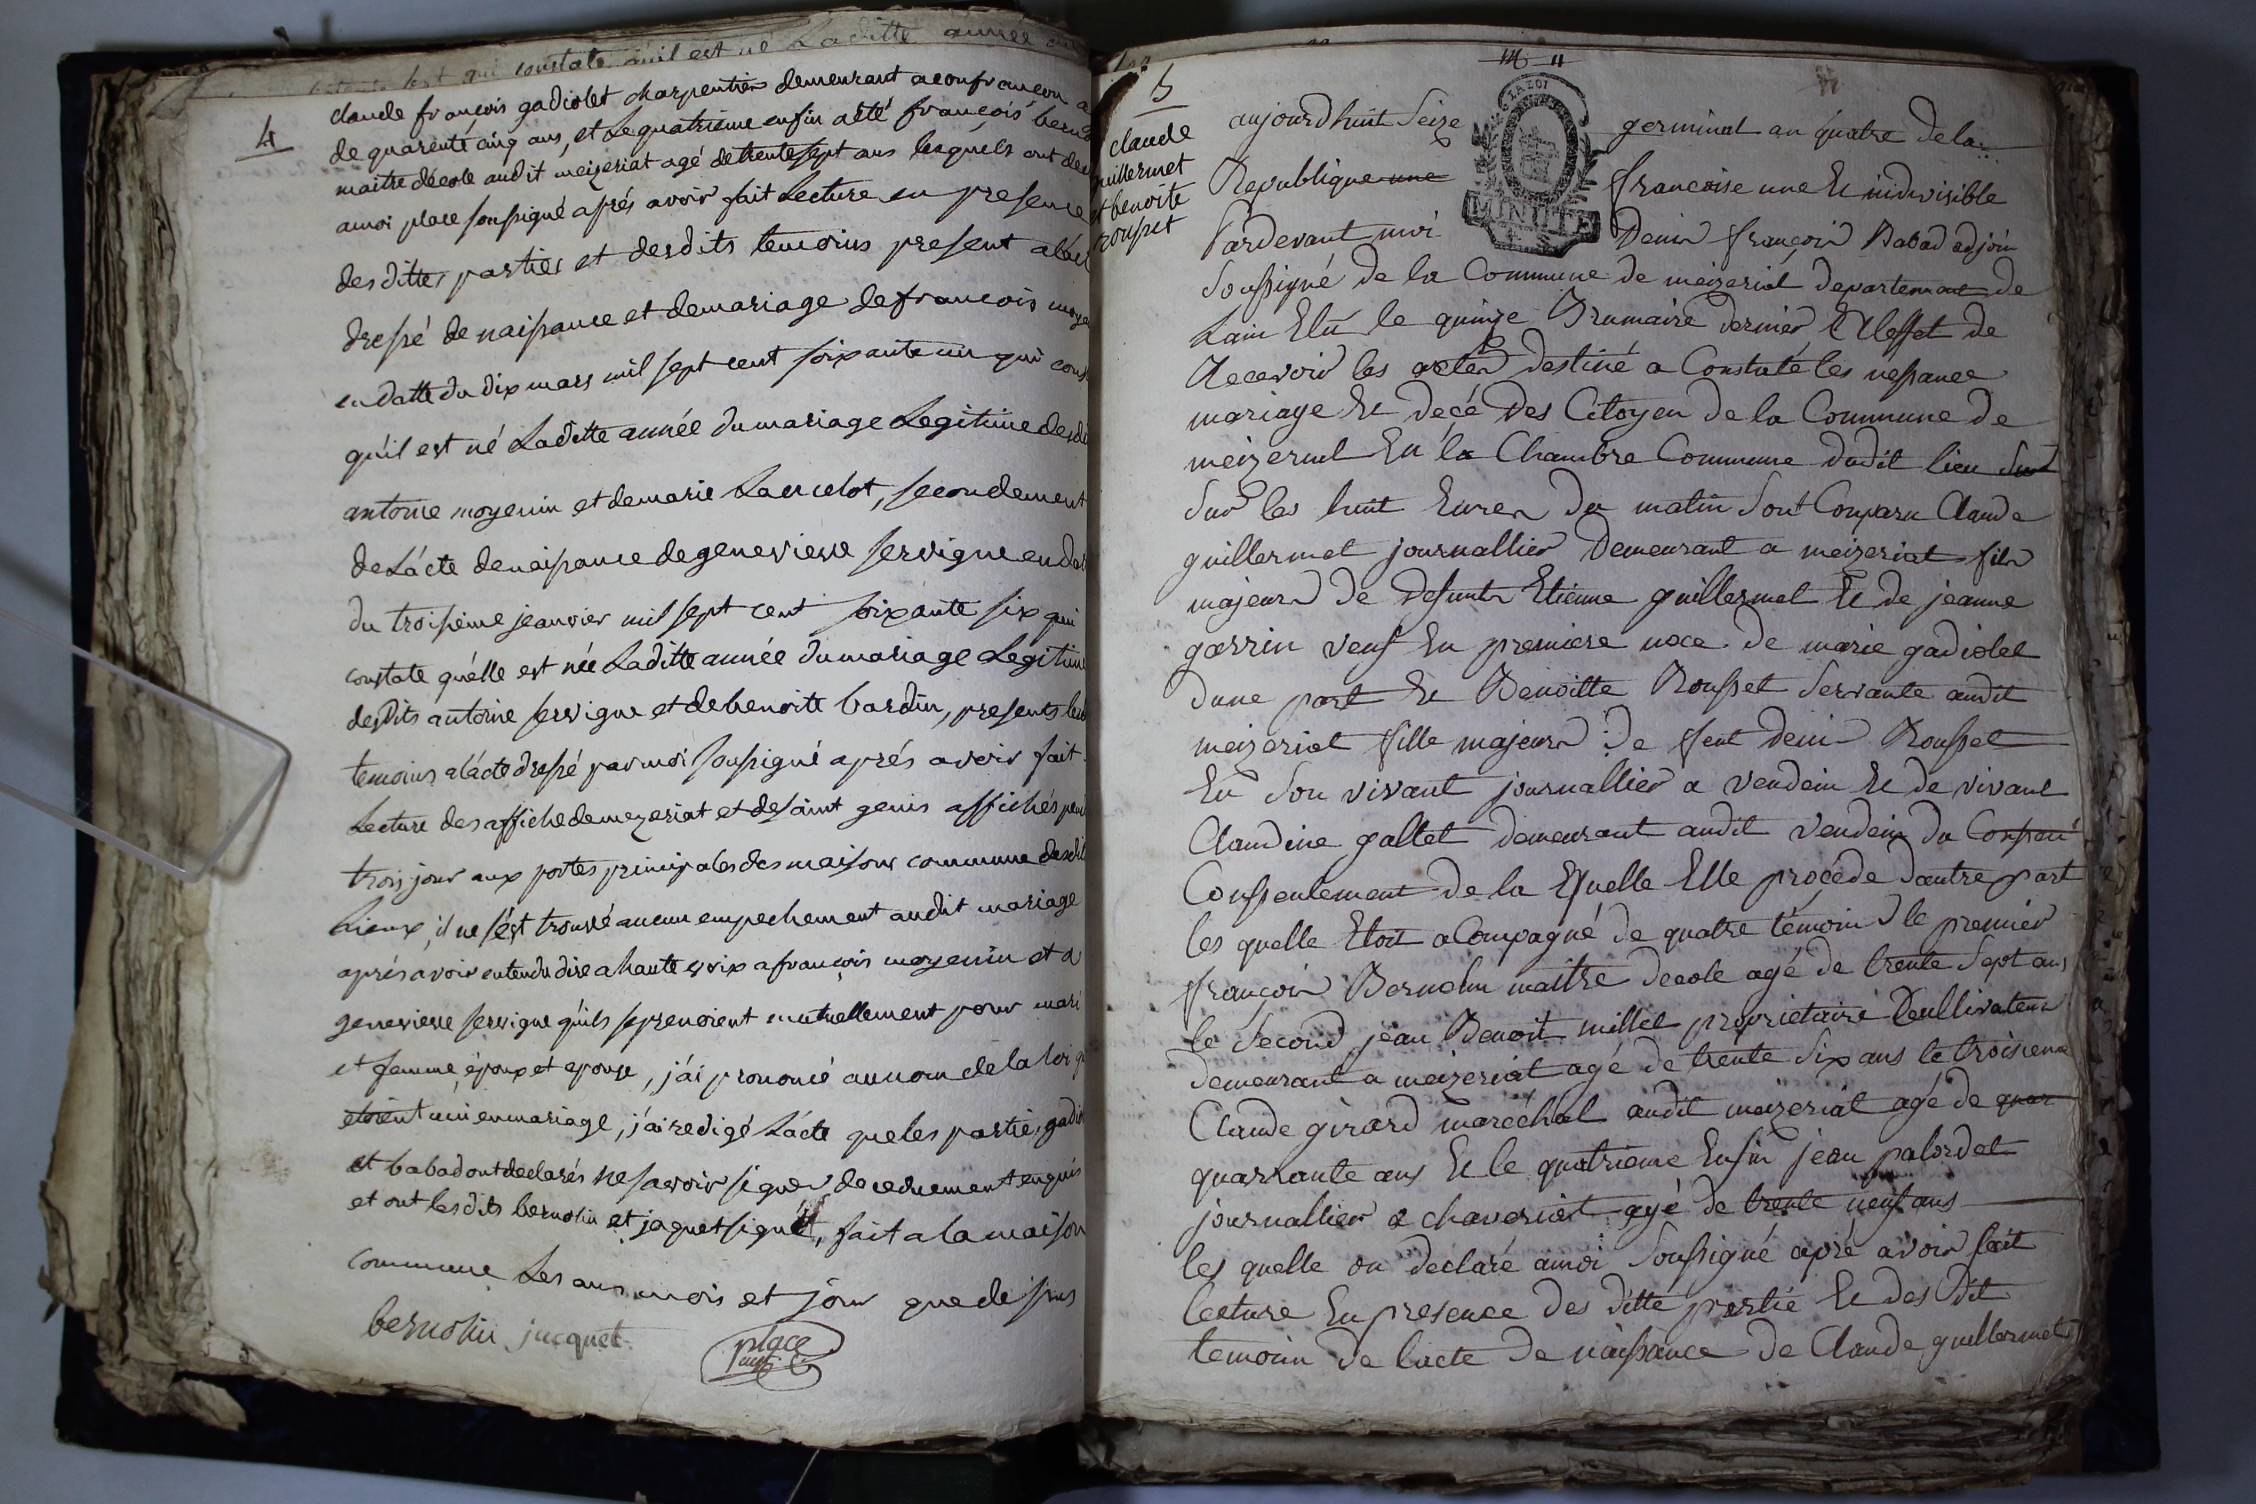 constate qu'il est né Laditte année
4
claude françois gadiolet charpentier demeurant a confrancon a
de quarente cinq ans, et Le quatrième enfin a été françois
maitre décole audit meizeriat agé de trente sept ans lesquels ont
amoi place soussigné aprés avoir fait Lecture en presence
des dittes parties et desdits temoins present
dressé de naissance et de mariage de francois
en datte du dix mars mil sept cent soixante un qui
qu'il est né Laditte année du mariage Legitime
antoine moyenin et de marie Lancelot, secondement
de L'acte de naissance de genevieve servigne en
du troisième jeanvier mil sept cent soixante six qui
constate qu'elle est née Laditte année du mariage Legitime
desdits antoine servigne et de benoitte bardin, presents
temoins a l'acte dressé par moi soussigné aprés avoir fait
Lecture des affiche de mezeriat et de saint genis affichés
trois jour aux portes principales des maisons commune
Lieux, il ne s'est trouvé aucun empechement audit mariage
aprés avoir entendu dire a haute voix a françois moyenin et a
genevieve servigne qu'ils se prenoient mutuellement pour mari
et femme, époux et epouse, j'ai prononcé au nom de la loi
etoient uni en mariage, j'ai redigé L'acte que les parties,
et babad ont declarés ne savoir signer de ce duement enquis
et ont lesdits bernolin et jaquet signé, fait a la maison
commune Les ans mois et jour que dessus
bernolin jacquet
place
5
claude
guillermet
et benoite
rousset
LA LOI
MINUTE
aujourdhuit Seize germinal an quatre de la
Republique une françoise une Et indivisible
Pardevant moi Denis françois Babad adjoin
Soussigné de la Commune de meizeriat departement de
Lain Elu le quinze Brumaire dernier a leffet de
Recevoir les actes destiné a Constaté les nessance
mariage Et decé des Citoyen de la Commune de
meizeriat En la Chambre Commune dudit lieu
Sur les huit heures du matin Sont Comparu Claude
guillermet journallier Demeurant a meizeriat fils
majeurs de defunts Etienne guillermet Et de jeanne
gorrin veuf En premiere noce de marie gadiolet
dune part Et Benoitte Rousset Servante audit
meizeriat fille majeurs de feut Denis Rousset
En Son vivant journallier a vendein Et de vivant
Claudine gallet demeurant audit vendein du
Conssentement de la Equelle Elle procéde dautre part
les quelle Etoit acompagné de quatre témoins le premier
françois Bernolin maitre decole agé de trente Sept ans
le Second jean Benoit millet proprietaire Cultivateur
demeurant a meizeriat agé de trente Six ans le troisieme
Claude girard maréchal audit meizeriat agé de quar
quarrante ans Et le quatrieme Enfin jean palordet
journallier a chaveriat agé de trente neuf ans
les quelle on déclaré amoi Soussigné apré avoir fait
lecture En presence des ditte partie Et des dit
temoin de lacte de naissance de Claude guillermet